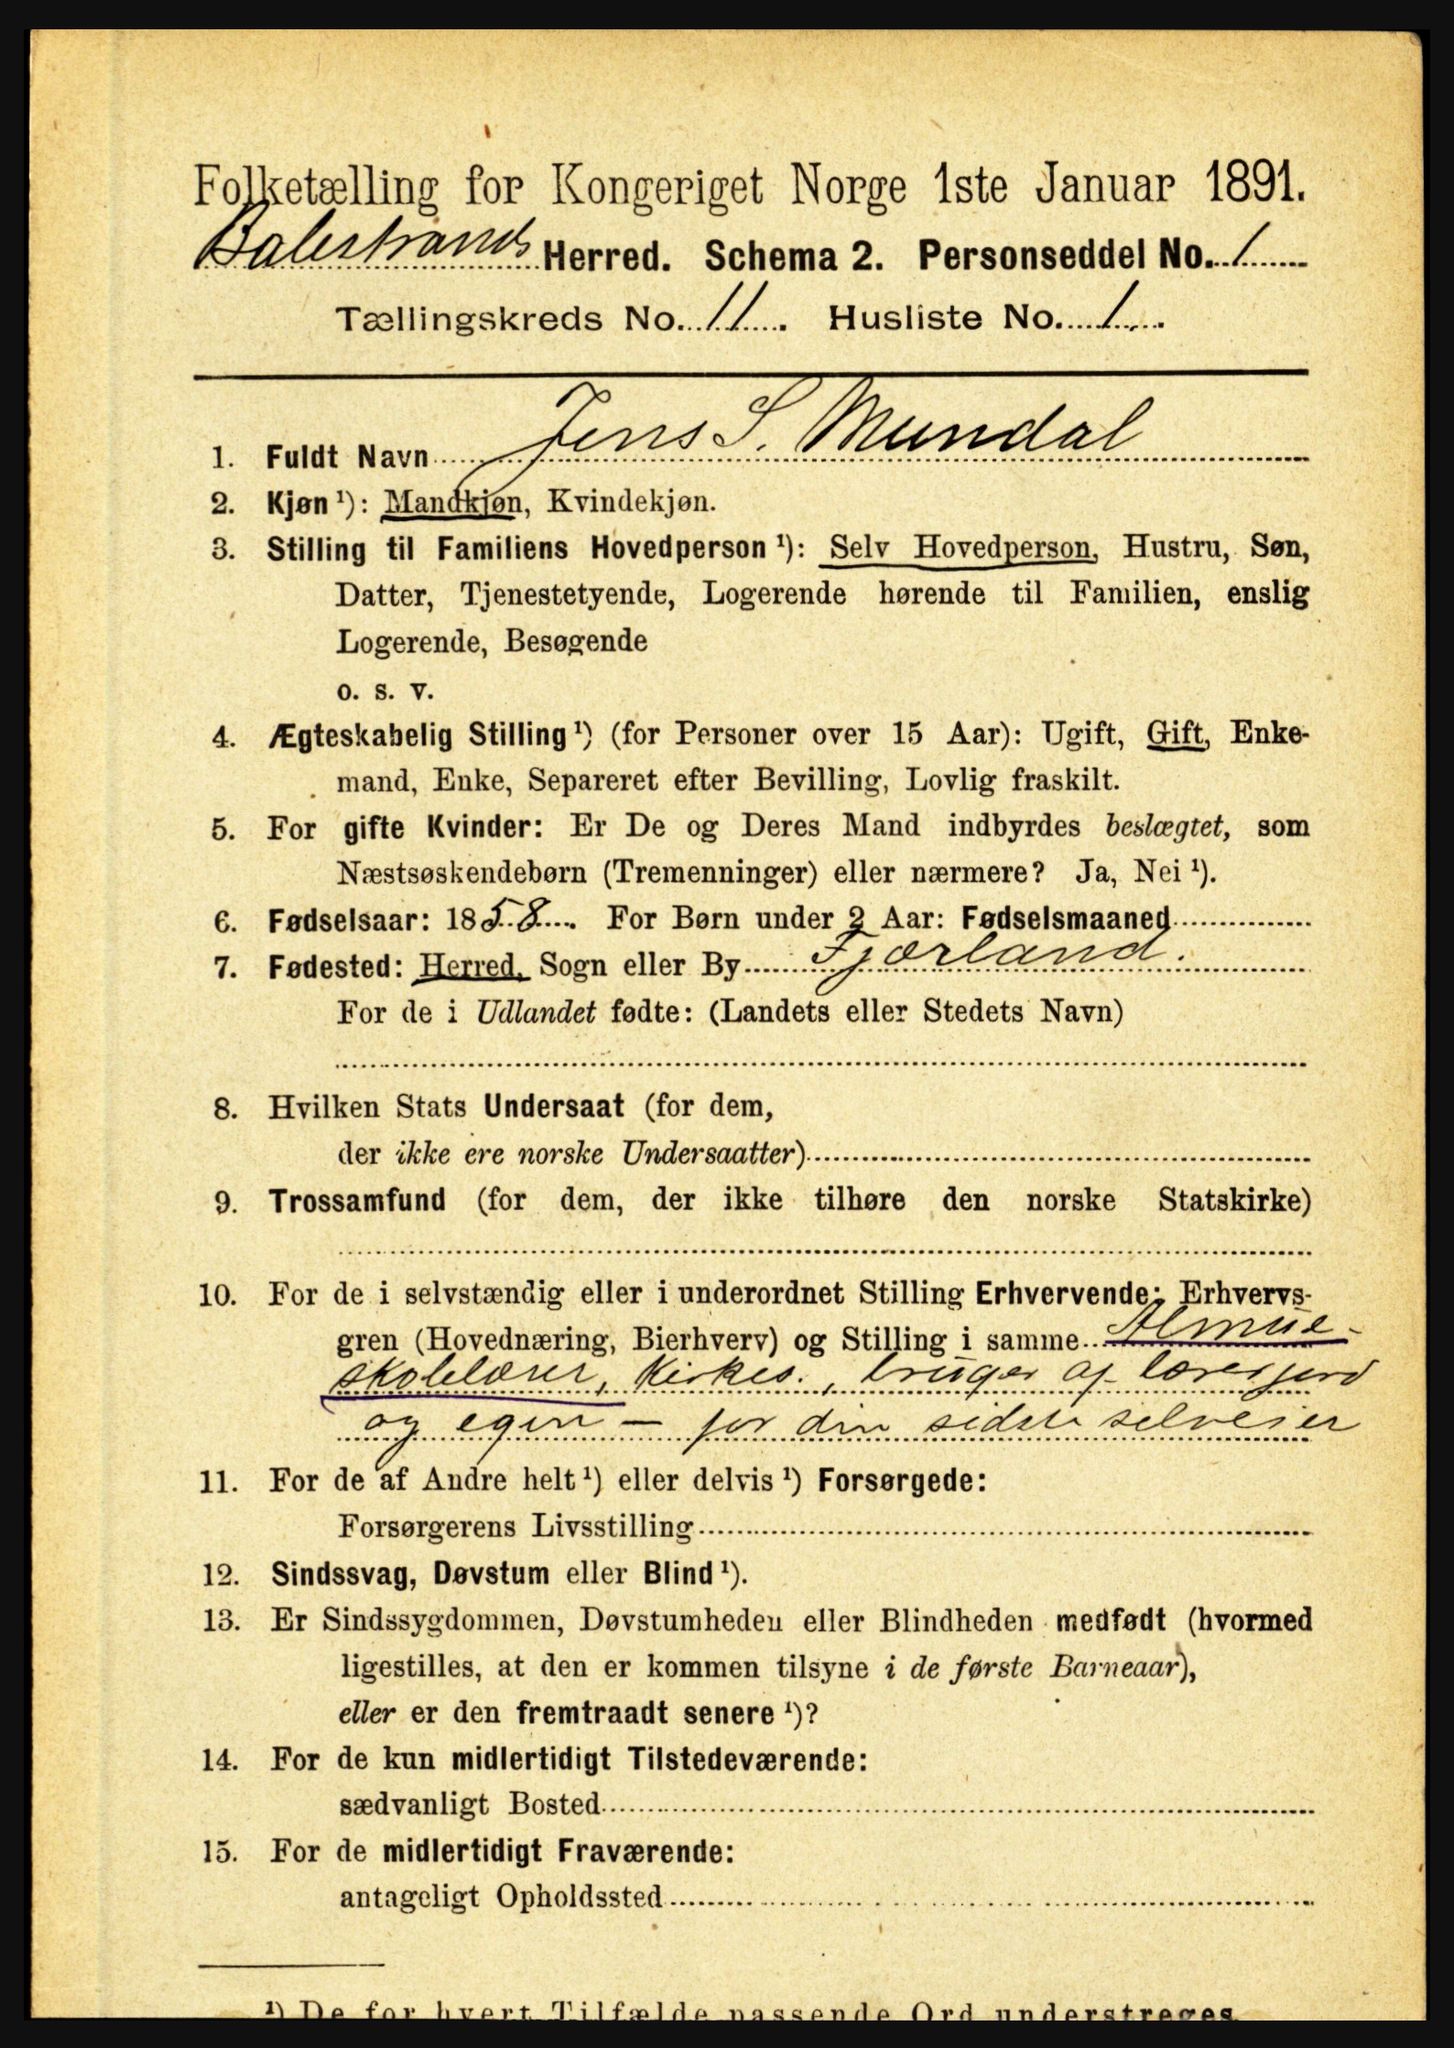 Folketælling for Kongeriget Norge 1ste Januar 1891.
Balestrands Herred. Schema 2. Personseddel No. 1
Tællingskreds No. 11. Husliste No. 1.
1. Fuldt Navn Jens S. Mundal
2. Kjøn ¹): Mandkjøn, Kvindekjøn.
3. Stilling til Familiens Hovedperson ¹): Selv Hovedperson, Hustru, Søn,
Datter, Tjenestetyende, Logerende hørende til Familien, enslig
Logerende, Besøgende
o. s. v.
4. Ægteskabelig Stilling ¹) (for Personer over 15 Aar): Ugift, Gift, Enke-
mand, Enke, Separeret efter Bevilling, Lovlig fraskilt.
5. For gifte Kvinder: Er De og Deres Mand indbyrdes beslægtet, som
Næstsøskendebørn (Tremenninger) eller nærmere? Ja, Nei ¹).
6. Fødselsaar: 1858. For Børn under 2 Aar: Fødselsmaaned
7. Fødested: Herred, Sogn eller By Fjærland.
For de i Udlandet fødte: (Landets eller Stedets Navn)
8. Hvilken Stats Undersaat (for dem,
der ikke ere norske Undersaatter)
9. Trossamfund (for dem, der ikke tilhøre den norske Statskirke)
10. For de i selvstændig eller i underordnet Stilling Erhvervende: Erhvervs-
gren (Hovednæring, Bierhverv) og Stilling i samme Almue-
skolelærer, Kirkes., bruger af lærerjord
og egen — for den sidste selveier
11. For de af Andre helt ¹) eller delvis ¹) Forsørgede:
Forsørgerens Livsstilling
12. Sindssvag, Døvstum eller Blind ¹).
13. Er Sindssygdommen, Døvstumheden eller Blindheden medfødt (hvormed
ligestilles, at den er kommen tilsyne i de første Barneaar),
eller er den fremtraadt senere ¹)?
14. For de kun midlertidigt Tilstedeværende:
sædvanligt Bosted
15. For de midlertidigt Fraværende:
antageligt Opholdssted
¹) De for hvert Tilfælde passende Ord understreges.